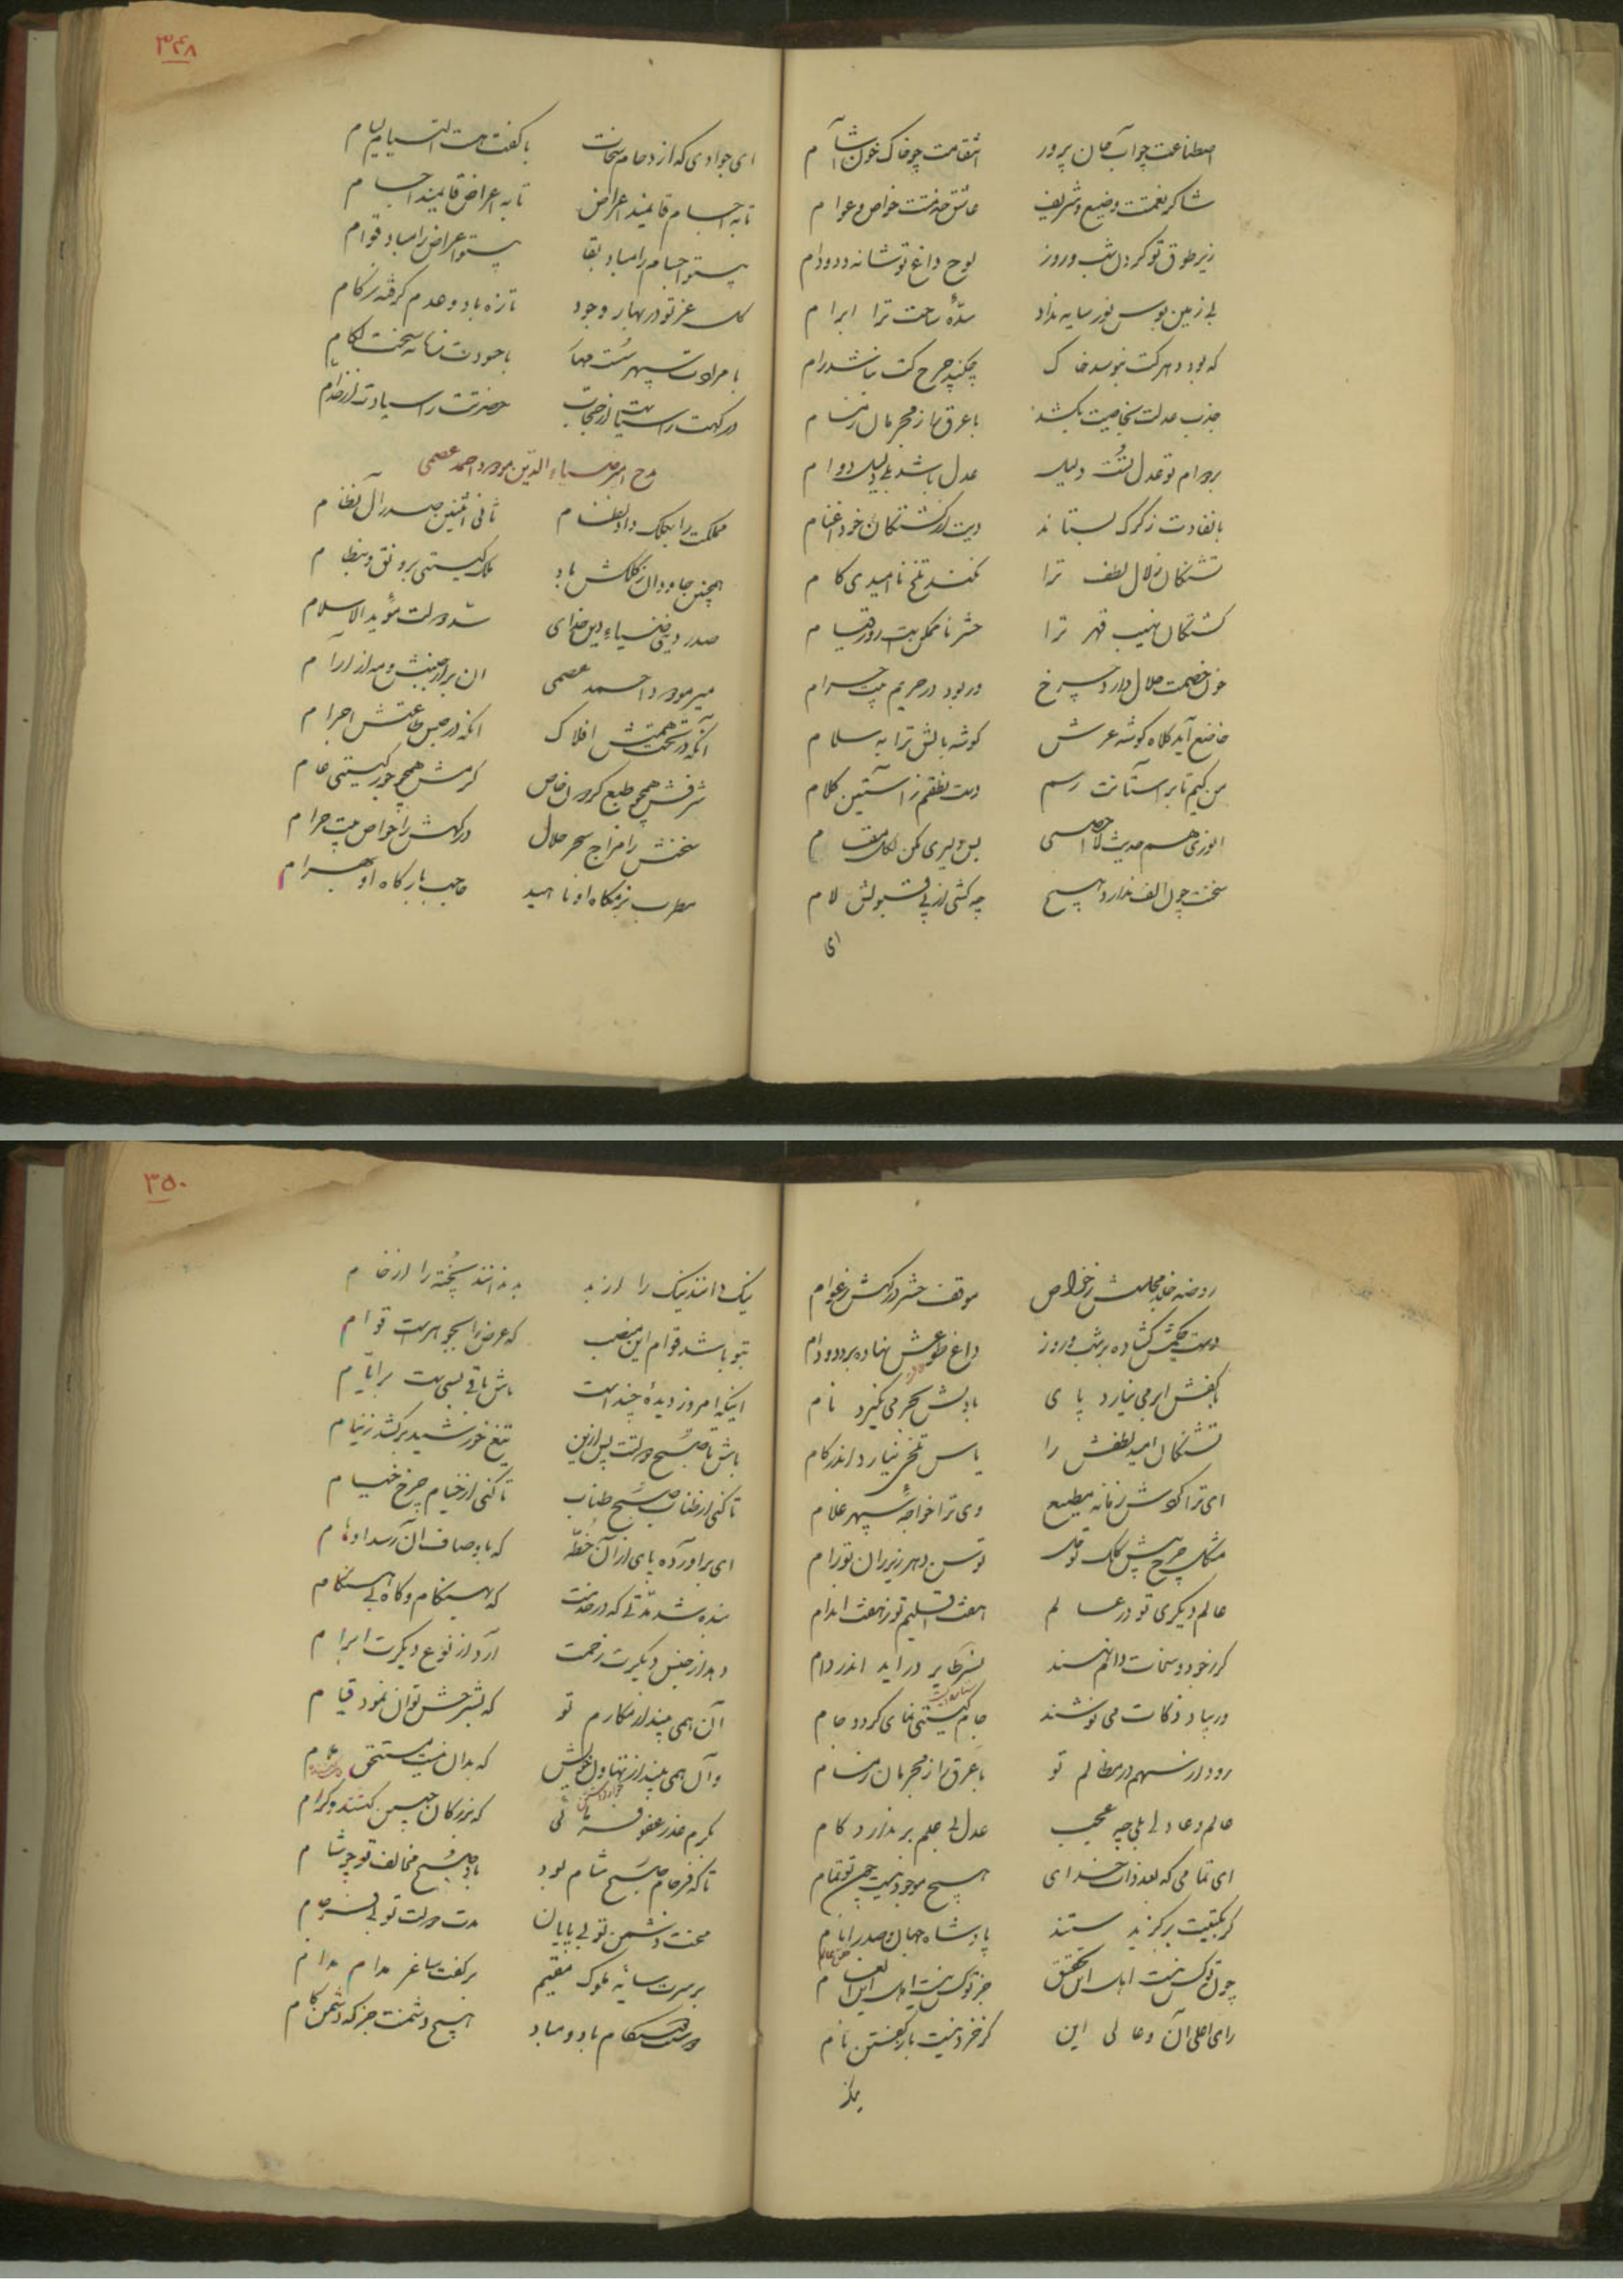 اصطناعت چو آب جان پرور انتقامت چو خاک خون آشام
شاکر نعمتت وضیع و شریف عاشق خدمتت خواص و عوام
زیر طوق تو گردن شب و روز لوح داغ تو شانه دد و دام
بی زمین بوس نور سایه نداد سدّهٔ ساحت ترا ابرام
که بود دهر کت نبوسد خاک چکند چرخ کت نباشد رام
جذب عدلت بخاصیت بکشد با عرق راز مجرمان ز مسام
بر دوام تو عدل تست دلیل عدل باشد بلی دلیل دوام
با نفاذت ز گرگ بستاند دیت کشتگان خود اغنام
تشنگان زلال لطف ترا نکند تلخ ناامیدی کام
کشتگان نهیب قهر ترا حشر ناممکنست روز قیام
خون خصمت حلال دارد چرخ ور بود در حریم بیت حرام
خاضع آید کلاه گوشه عرش گوشه بالش ترا به سلام
من کیم تا بر آستانت رسم دست نطقم ز آستین کلام
انوری هم حدیث لا احصی بس دلیری مکن لکل مقام
سخنت چون الف ندارد هیچ چه کشی از پی قبولش لام
ای
۳۴۸
ای جوادی که از دحام سخات با کفت هست التیام لیام
تا به اجسام قایمند اعراض تا به اعراض قایمند اجسام
بیتو اجسام را مباد بقا بیتو اعراض را مباد قوام
گل عز تو در بهار وجود تازه باد و عدم گرفته زکام
با مرادت سپهر سست مهار با حسودت زمانه سخت لگام
درگهت را سیاست از حجاب حضرتت را سیادت از خدام
مدح امیر ضیاء الدین مودود احمد عصمی
مملکت را بکلک داد نظام ثانی اثنین صدر آل نظام
همچنین جاودان ز کلکش باد ملک گیتی برونق و بنظام
صدر دین ضیاء دین خدای سد دولت مؤید الاسلام
میر مودود احمد عصمی ان بر از جنبش و مه از آرام
آنکه در تحت همتش افلاک انکه در حبس طاعتش اجرام
شرفش همچو طبع گردون خاص کرمش همچو جود گیتی عام
سخنش را مزاج سحر حلال درگهش را خواص بیت حرام
مطرب بزمگاه او ناهید حاجب بارگاه او بهرام
روضه خلد مجلسش ز خواص موقف حشر درگهش ز عوام
دست حکمش گشاده بر شب و روز داغ طوعش نهاده بر دد و دام
با کفش ابر می نیارد پای با دلش بحر می نگیرد نام
تشنگان امید لطفش را یاس تلخی نیارد اندر کام
ای ترا گردش زمانه مطیع وی ترا خواجهٔ سپهر غلام
مشکل چرخ پیش کلک تو حل توسن دهر زیر ران تو رام
عالم دیگری تو در عالم هفت اقلیم تو ز هفت اندام
گر ز جود و سخات دام نهند نسر طایر در آید اندر دام
ور بیاد ذکات می نوشند جام گیتی نمای گردد جام
رود از سهم در مظالم تو با عرق راز مجرمان ز مسام
عالم و عادلی بلی چه عجب عدل بی علم بر ندارد گام
ای تمامی که بعد ذات خدای هیچ موجود نیست چون تو تمام
گر بکنیت برگزید سند پادشاه جهان و صدر انام
چون تو کس نیست اهل این تحقیق جز تو کس نیست اهل این انعام
رای اعلی آن و عالی این گر خرد نیست بازگفتن نام
۳۵۰
نیک دانند نیک را از بد بد ندانند پخته را از خام
بتو باشد قوام این منصب که عرض را بجوهرست قوام
اینکه امروز دیدهٔ چندانست باش تا قی بسی بست بر ایام
باش تا صبح دولتت پس ازین تیغ خورشید برکشد ز نیام
تا کنی از طناب صبح طناب تا کنی از خیام چرخ خیام
ای برآورده پای از آن خطه که باوصاف آن رسد اوهام
بنده شد مدتی که در خدمت گه بهنگام و گاه بی هنگام
دهد از جنس دیگرت زحمت آرد از نوع دیگرت ابرام
آن همی بیند از مکارم تو که بشرحش توان نمود قیام
کرم عذر عفو که بزرگان چنین کنند و کرام
تا که فرجام صبح شام بود باد صبح مخالف تو چو شام
محنت دشمن تو بی پایان مدت دولت تو بی فرجام
بر سرت سایه ملوک مقیم بر کفت ساغر مدام مدام
هیچ دشمنت جز که دشمن کام